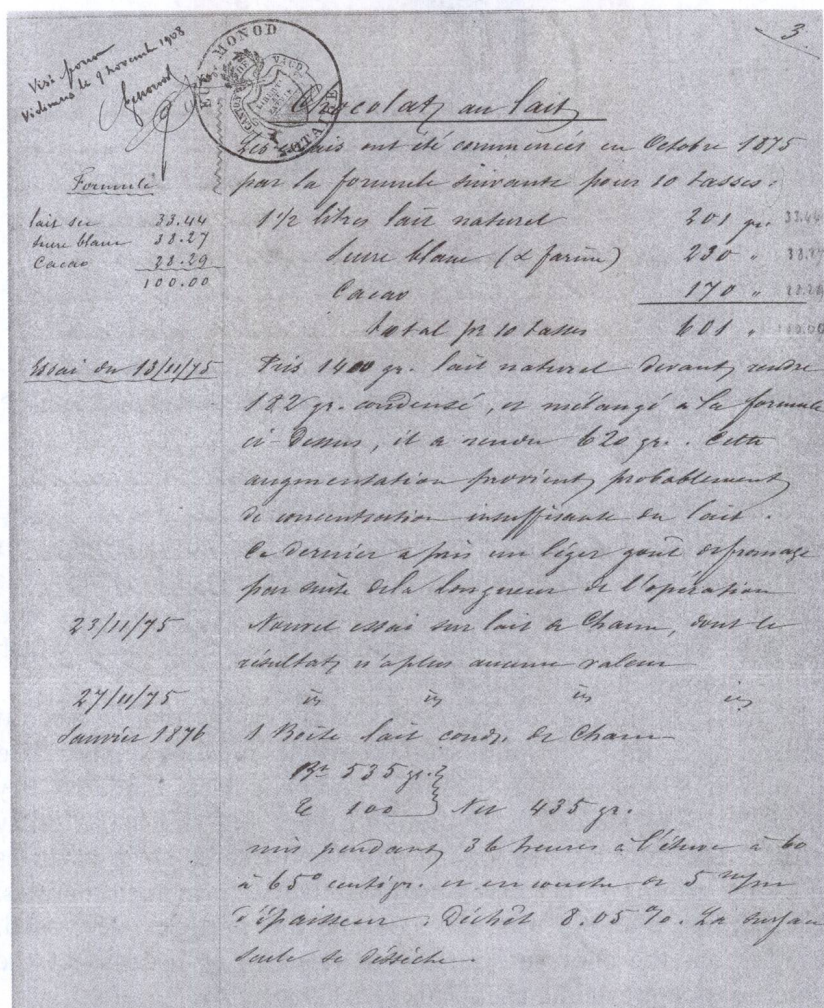 3.
Visé pour
Vidimus le 9 novembre 1908
EUG. MONOD
NOTAIRE
CANTON DE VAUD
LIBERTÉ ET PATRIE
Chocolat au lait
Les essais ont été commencés en Octobre 1875
par la formule suivante pour 10 tasses.
Formule
lait sec 33.44
sucre blanc 38.27
Cacao 28.29
100.00
1 1/2 litres lait naturel 201 gr. 33.44
Sucre blanc (& farine) 230 " 38.27
Cacao 170 " 28.29
total pr 10 tasses 601 " 100.00
Essai du 13/11/75
Pris 1400 gr. lait naturel devant rendre
182 gr. condensé, et mélangé à la formule
ci-dessus, il a rendu 620 gr. Cette
augmentation provient probablement
de concentration insuffisante du lait.
Ce dernier a pris un léger goût de fromage
par suite de la longueur de l'opération
23/11/75 Nouvel essai sur lait de Cham, dont le
résultat n'a plus aucune valeur
27/11/75 id id id id
Janvier 1876 1 Boîte lait cond. de Cham
Bt 535 gr.
Te 100 Net 435 gr.
mis pendant 36 heures à l'étuve à 60
à 65° centigr. et en couche de 5 m/m
d'épaisseur. Déchêt 8.05 %. La surface
seule se dessèche.